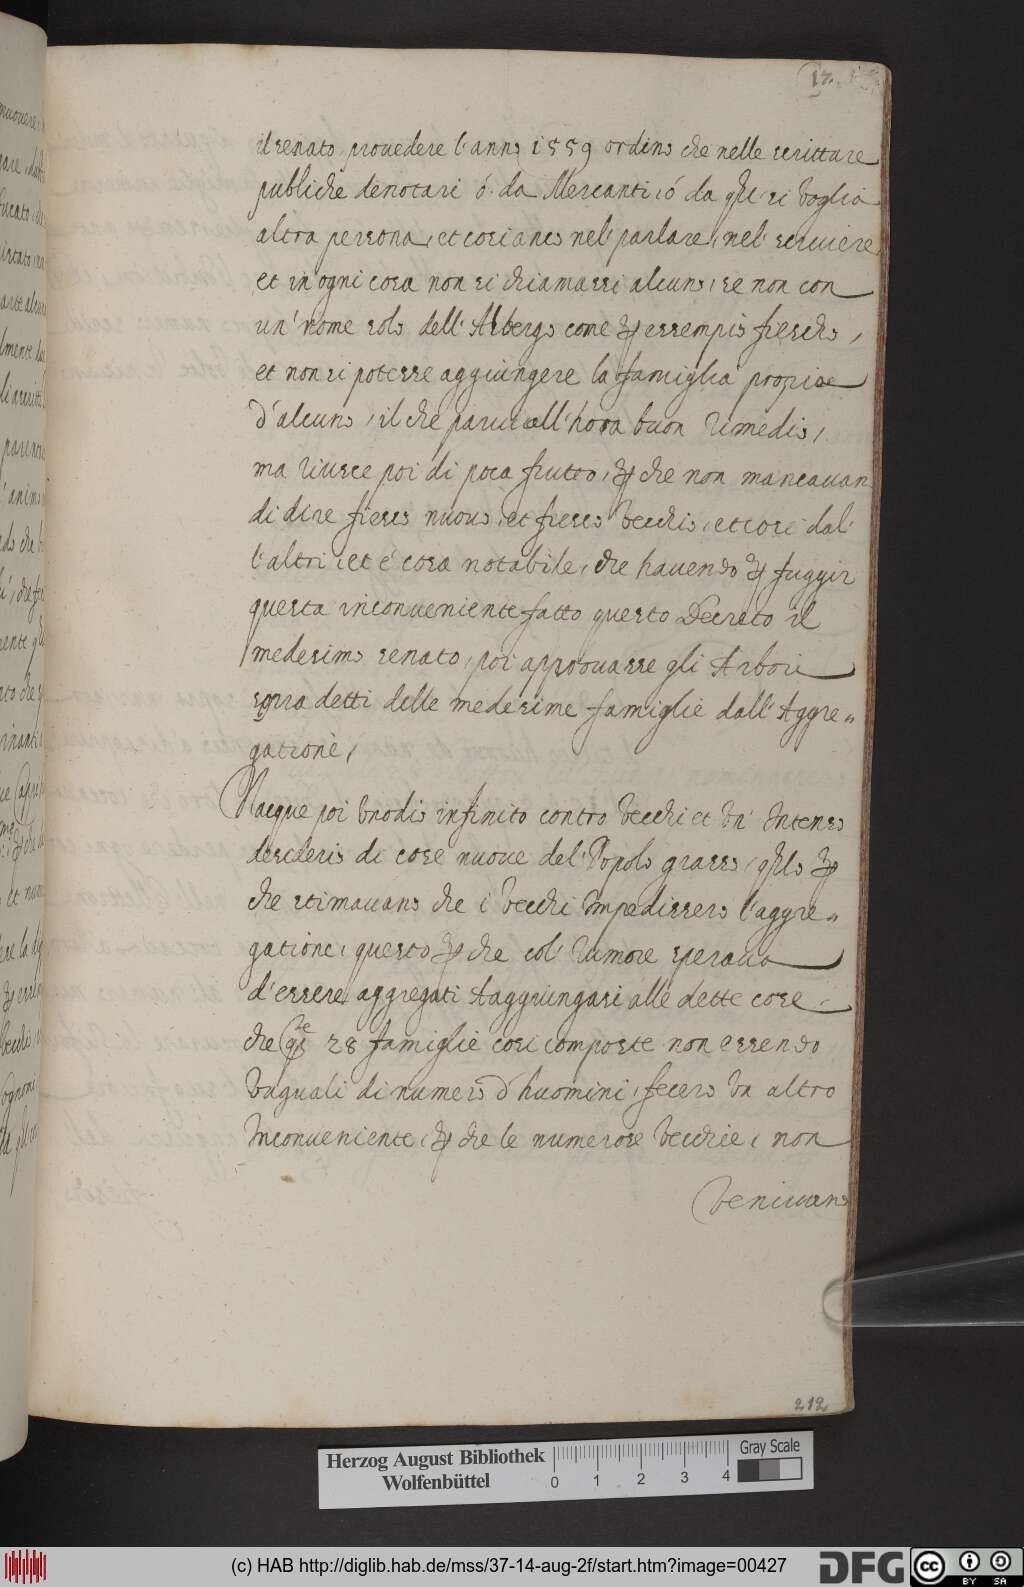 17.
il senato prouedere l'anno 1559 ordino che nelle scritture
publiche de notari ó da Mercanti, ó da qlsi voglia
altra persona, et cosi anco nel' parlare, nel' scriuere
et in ogni cosa non si chiamassi alcuno, se non con
un' nome solo dell' Albergo come p essempio fiescho,
et non si potesse aggiungere la famiglia propria
d'alcuno, il che parue all'hora buon rimedio,
ma riusce poi di poca frutto, p che non mancauan
di dire fiesco nuouo, et fiesco vecchio, et cosi dal'
l'altri, et é cosa notabile, che hauendo p fuggir
questa inconueniente fatto questo Decreto il
medesimo senato, poi approuasse gli Arbori
sopra detti delle medesime famiglie dall' Aggre=
gatione,
Nacque poi un odio infinito contro vecchi et un' Intenso
desiderio di cose nuoue del' Popolo grasso, qlo p
che stimauano che i vecchi Impedissero l'aggre=
gatione, questo p che col' rumore speraua
d'essere aggregati Aaggiungasi alle dette cose,
che 28 famiglie cosi composte non essendo
vuguali di numero d'huomini, fecero un altro
Inconueniente, p che le numerose vecchie, non
veniuano
212
Herzog August Bibliothek
Wolfenbüttel
0 1 2 3 4
Gray Scale
(c) HAB http://diglib.hab.de/mss/37-14-aug-2f/start.htm?image=00427
DFG
cc BY SA